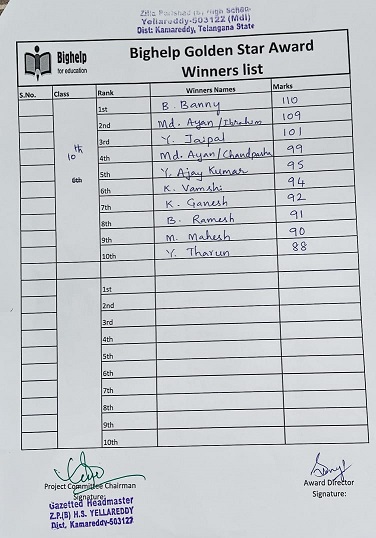 Zilla Parishad (B) High School
Yellareddy-503122 (Mdl)
Dist: Kamareddy, Telangana State
Bighelp
for education
Bighelp Golden Star Award
Winners list
S.No. Class Rank Winners Names Marks
1st B. Banny 110
2nd Md. Ayan/Ibrahim 109
3rd Y. Jaipal 101
10th
4th Md. Ayan/Chandpasha 99
5th Y. Ajay Kumar 95
6th
6th K. Vamshi 94
7th K. Ganesh 92
8th B. Ramesh 91
9th M. Mahesh 90
10th Y. Tharun 88
1st
2nd
3rd
4th
5th
6th
7th
8th
9th
10th
Project Committee Chairman
Signature:
Gazetted Headmaster
Z.P.(B) H.S. YELLAREDDY
Dist. Kamareddy-503122
Award Director
Signature: